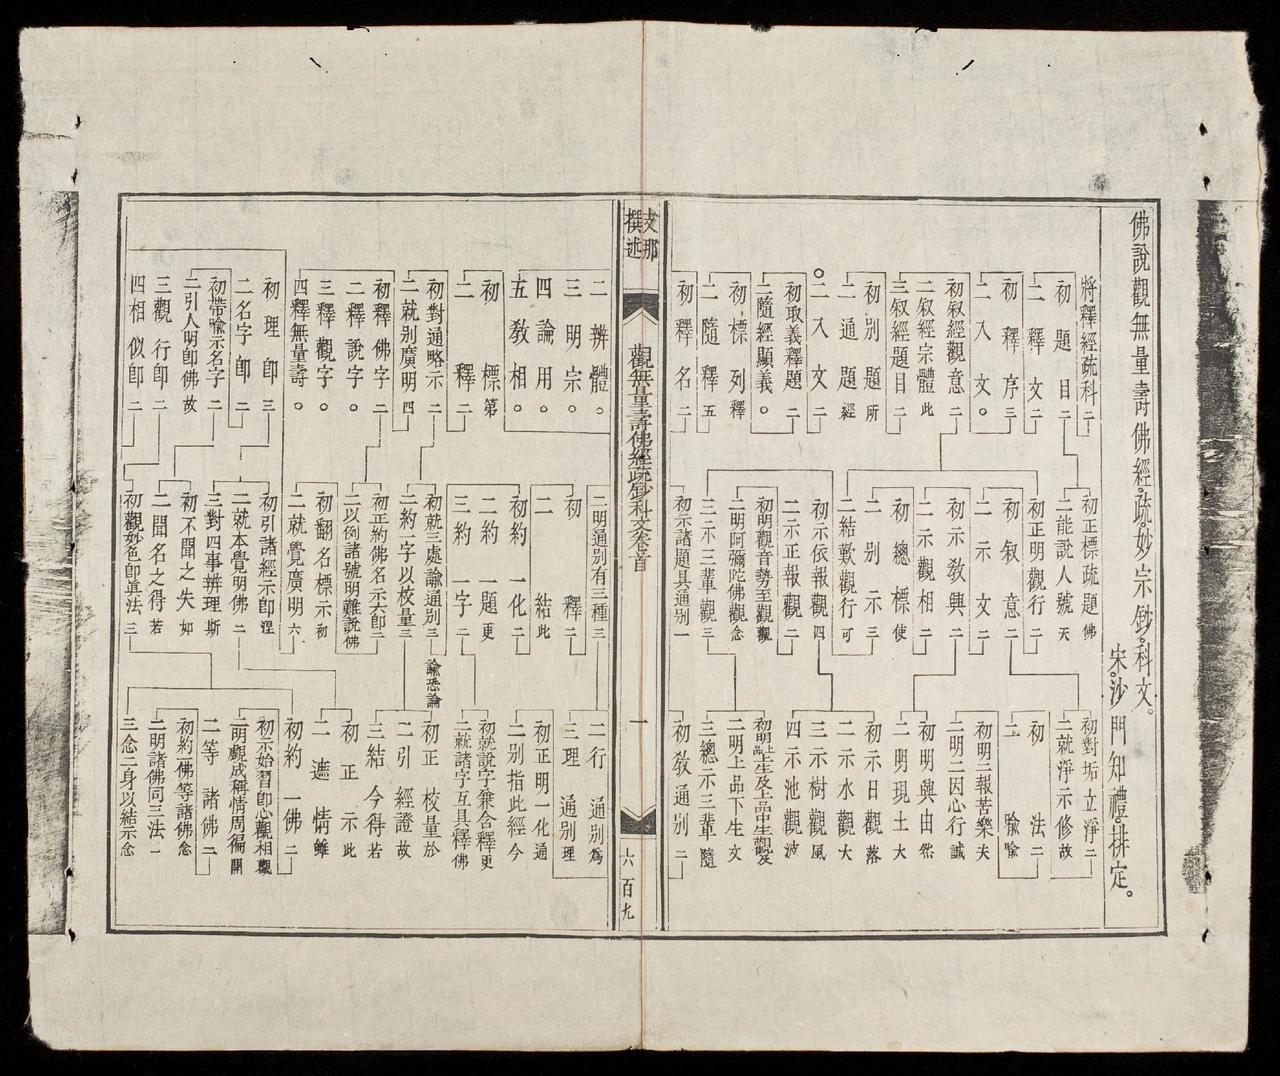 佛說觀無量壽佛經疏妙宗鈔科文。
宋。沙門知禮。排定。
將釋經疏科二
初題目二
二釋文二
初釋序三
二入文。
初敘經觀意二
二敘經宗體此
三敘經題目二
初別題所
二通題經
二入文二
初取義釋題二
二隨經顯義。
初標列釋
二隨釋五
初釋名二
初正標疏題佛
二能說人號天
初正明觀行二
初敘意二
二示文二
初示教興二
二示觀相二
初總標使
二別示三
二結歎觀行可
初示依報觀四
二示正報觀二
初明觀音勢至觀觀
二明阿彌陀佛觀念
三示三輩觀三
初示諸題具通別一
初對垢立淨二
二就淨示修故
初法二
二喻喻
初明三報苦樂夫
二明二因心行誠
初明興由然
二明現土大
初示日觀落
二示水觀大
三示樹觀風
四示池觀波
二明上品下生文
三總示三輩隨
初教通別二
支那撰述
觀無量壽佛經疏鈔科文卷首
一
六百九
二辨體。
三明宗。
四論用。
五教相。
初標第
二釋二
初對通略示二
二就別廣明四
初釋佛字二
二釋說字。
三釋觀字。
四釋無量壽。
初理即三
二名字即二
初帶喻示名字二
二引人明即佛故
三觀行即二
四相似即二
二明通別有三種三
初釋二
二結此
初約一化二
二約一題更
三約一字二
初就三處論通別三
論恐論
二約一字以校量三
初正約佛名示六即二
二以例諸號明難說佛
初翻名標示初
二就覺廣明六
初引諸經示即涅
二就本覺明佛二
三對四事辨理斯
初不聞之失如
二聞名之得若
初觀妙色即眞法三
二行通別爲
三理通別理
初正明一化通
二別指此經今
初就說字兼含釋更
二就諸字互具釋佛
初正校量於
二引經證故
三結今得若
初正示此
二遮情雖
初約一佛二
初示始習即心觀相觀
二明觀成稱情周徧開
二等諸佛二
初約一佛等諸佛念
二明諸佛同三法一
三念二身以結示念